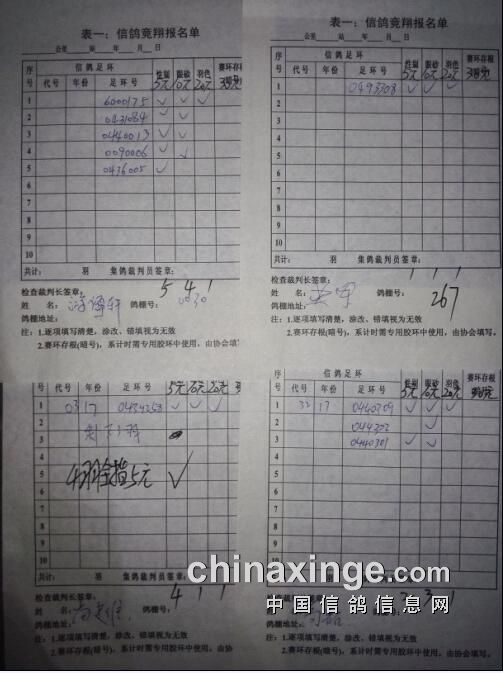 表一：信鸽竞翔报名单
公里 站 年 月 日
序号 信鸽足环 性别 眼砂 羽色 赛环存根(暗号)
代号 年份 足环号 5元 10元 20元
1 6000175 ✓ ✓ ✓
2 0431084 ✓ ✓
3 0440013 ✓ ✓
4 0090006 ✓ ✓
5 0436005 ✓
6
7
8
9
10
共计： 羽 集鸽裁判员签章：
检查裁判长签章： 5 4 1
姓 名： 鸽棚号： 0030
鸽棚地址：
注：1.逐项填写清楚，涂改、错填视为无效
2.赛环存根(暗号)，系计时需专用胶环中使用，由协会填写
表一：信鸽竞翔报名单
公里 站 年 月 日
序号 信鸽足环 性别 眼砂 羽色 赛环存根(暗号)
代号 年份 足环号 5元 10元 20元
1 0493308 ✓ ✓ ✓
2
3
4
5
6
7
8
9
10
共计： 羽 集鸽裁判员签章：
检查裁判长签章： 1 1 1
姓 名： 鸽棚号： 267
鸽棚地址：
注：1.逐项填写清楚，涂改、错填视为无效
2.赛环存根(暗号)，系计时需专用胶环中使用，由协会填写。
序号 信鸽足环
代号 年份 足环号 5元 10元 20元
1 03 17 0434258 ✓ ✓ ✓
2
3
4
5 4羽全指5元 ✓
6
7
8
9
10
共计： 羽 集鸽裁判员签章：
检查裁判长签章： 4 1 1
姓 名： 鸽棚号：
鸽棚地址：
注：1.逐项填写清楚，涂改、错填视为无效
2.赛环存根(暗号)，系计时需专用胶环中使用，由协
序号 信鸽足环 性别 眼砂 羽色 赛环存根
代号 年份 足环号 5元 10元 20元
1 32 17 0440309 ✓ ✓ ✓
2 044302 ✓
3 0440301 ✓ ✓
4
5
6
7
8
9
10
chinaxinge.com
中国信鸽信息网
注：1.逐项填写清楚，涂改、错填视为无效
2.赛环存根(暗号)，系计时需专用胶环中使用，由协会填写。